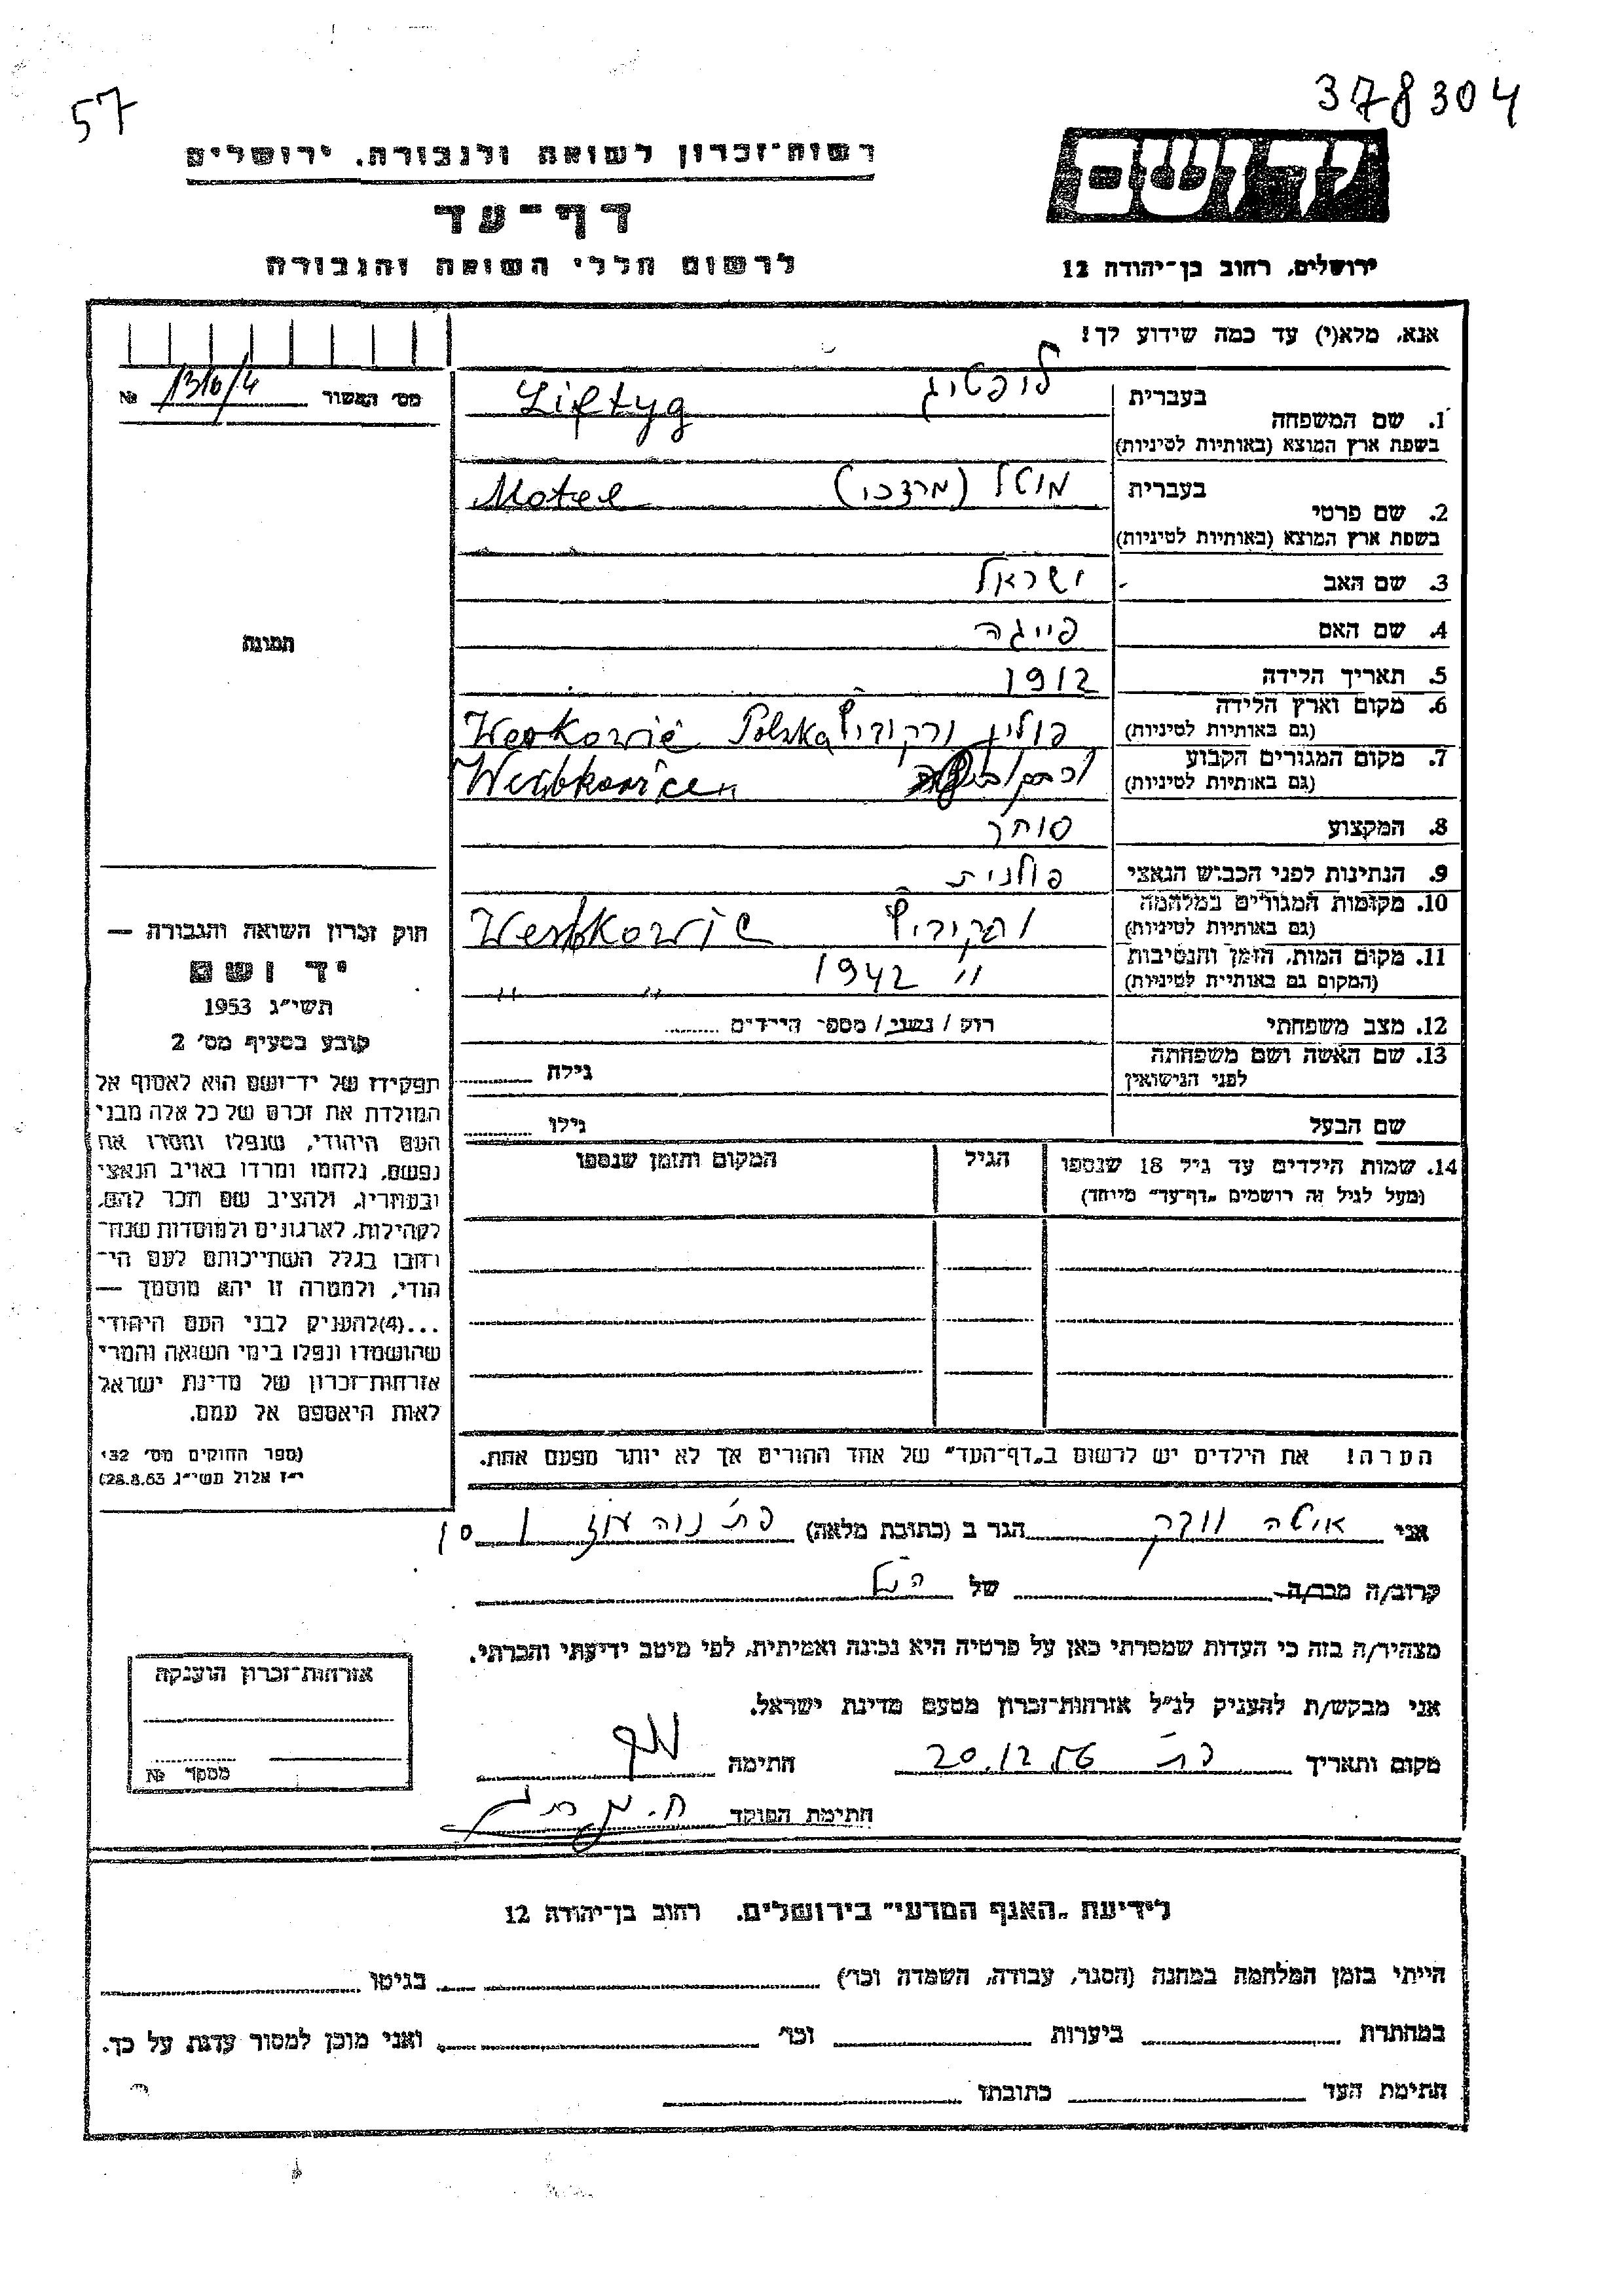 57
378304
רשות־זכרון לשואה ולגבורה, ירושלים
ידושם
דף־עד
לרשום חללי השואה והגבורה
ירושלים, רחוב בן־יהודה 12
אנא, מלא(י) עד כמה שידוע לך!
מס׳ האשור №
1. שם המשפחה
בעברית ליפטיג
בשפת ארץ המוצא (באותיות לטיניות) Liftyg
2. שם פרטי
בעברית מוטל (מרדכי)
בשפת ארץ המוצא (באותיות לטיניות) Motel
3. שם האב ישראל
4. שם האם פייגה
תמונה
5. תאריך הלידה 1912
6. מקום וארץ הלידה פולין Polska
(גם באותיות לטיניות)
7. מקום המגורים הקבוע
(גם באותיות לטיניות)
8. המקצוע סוחר
9. הנתינות לפני הכבוש הנאצי פולנית
10. מקומות המגורים במלחמה
(גם באותיות לטיניות)
11. מקום המות, הזמן והנסיבות " 1942 " "
(המקום גם באותיות לטיניות)
12. מצב משפחתי רווק / נשוי / מספר הילדים
13. שם האשה ושם משפחתה
לפני הנישואין גילה
שם הבעל גילו
14. שמות הילדים עד גיל 18 שנספו הגיל המקום והזמן שנספו
(מעל לגיל זה רושמים „דף־עד״ מיוחד)
הערה! את הילדים יש לרשום ב„דף־העד״ של אחד ההורים אך לא יותר מפעם אחת.
חוק זכרון השואה והגבורה —
יד ושם
תשי״ג 1953
קובע בסעיף מס׳ 2
תפקידו של יד־ושם הוא לאסוף אל
המולדת את זכרם של כל אלה מבני
העם היהודי, שנפלו ומסרו את
נפשם, נלחמו ומרדו באויב הנאצי
ובעוזריו, ולהציב שם וזכר להם,
לקהילות, לארגונים ולמוסדות שנח־
רבו בגלל השתייכותם לעם הי־
הודי, ולמטרה זו יהא מוסמך —
...(4)להעניק לבני העם היהודי
שהושמדו ונפלו בימי השואה והמרי
אזרחות־זכרון של מדינת ישראל
לאות היאספם אל עמם.
(ספר החוקים מס׳ 132
י״ז אלול תשי״ג 28.8.53)
אני איטה הגר ב (כתובת מלאה) פ״ת נוה עוז
קרוב/ה מכר/ה של הנ״ל
מצהיר/ה בזה כי העדות שמסרתי כאן על פרטיה היא נכונה ואמיתית, לפי מיטב ידיעתי והכרתי.
אני מבקש/ת להעניק לנ״ל אזרחות־זכרון מטעם מדינת ישראל.
מקום ותאריך פ״ת 20.12.56 חתימה
חתימת הפוקד
אזרחות־זכרון הוענקה
מספר №
לידיעת „האגף המדעי״ בירושלים. רחוב בן־יהודה 12
הייתי בזמן המלחמה במחנה (הסגר, עבודה, השמדה וכו׳) בגיטו
במחתרת ביערות וכו׳ ואני מוכן למסור עדות על כך.
חתימת העד כתובתו